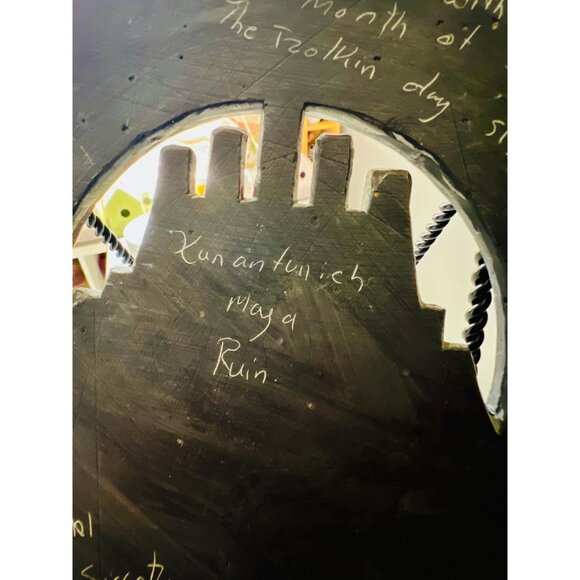 with
Month of
The Tzolkin day
Xunantunich
Maya
Ruin.